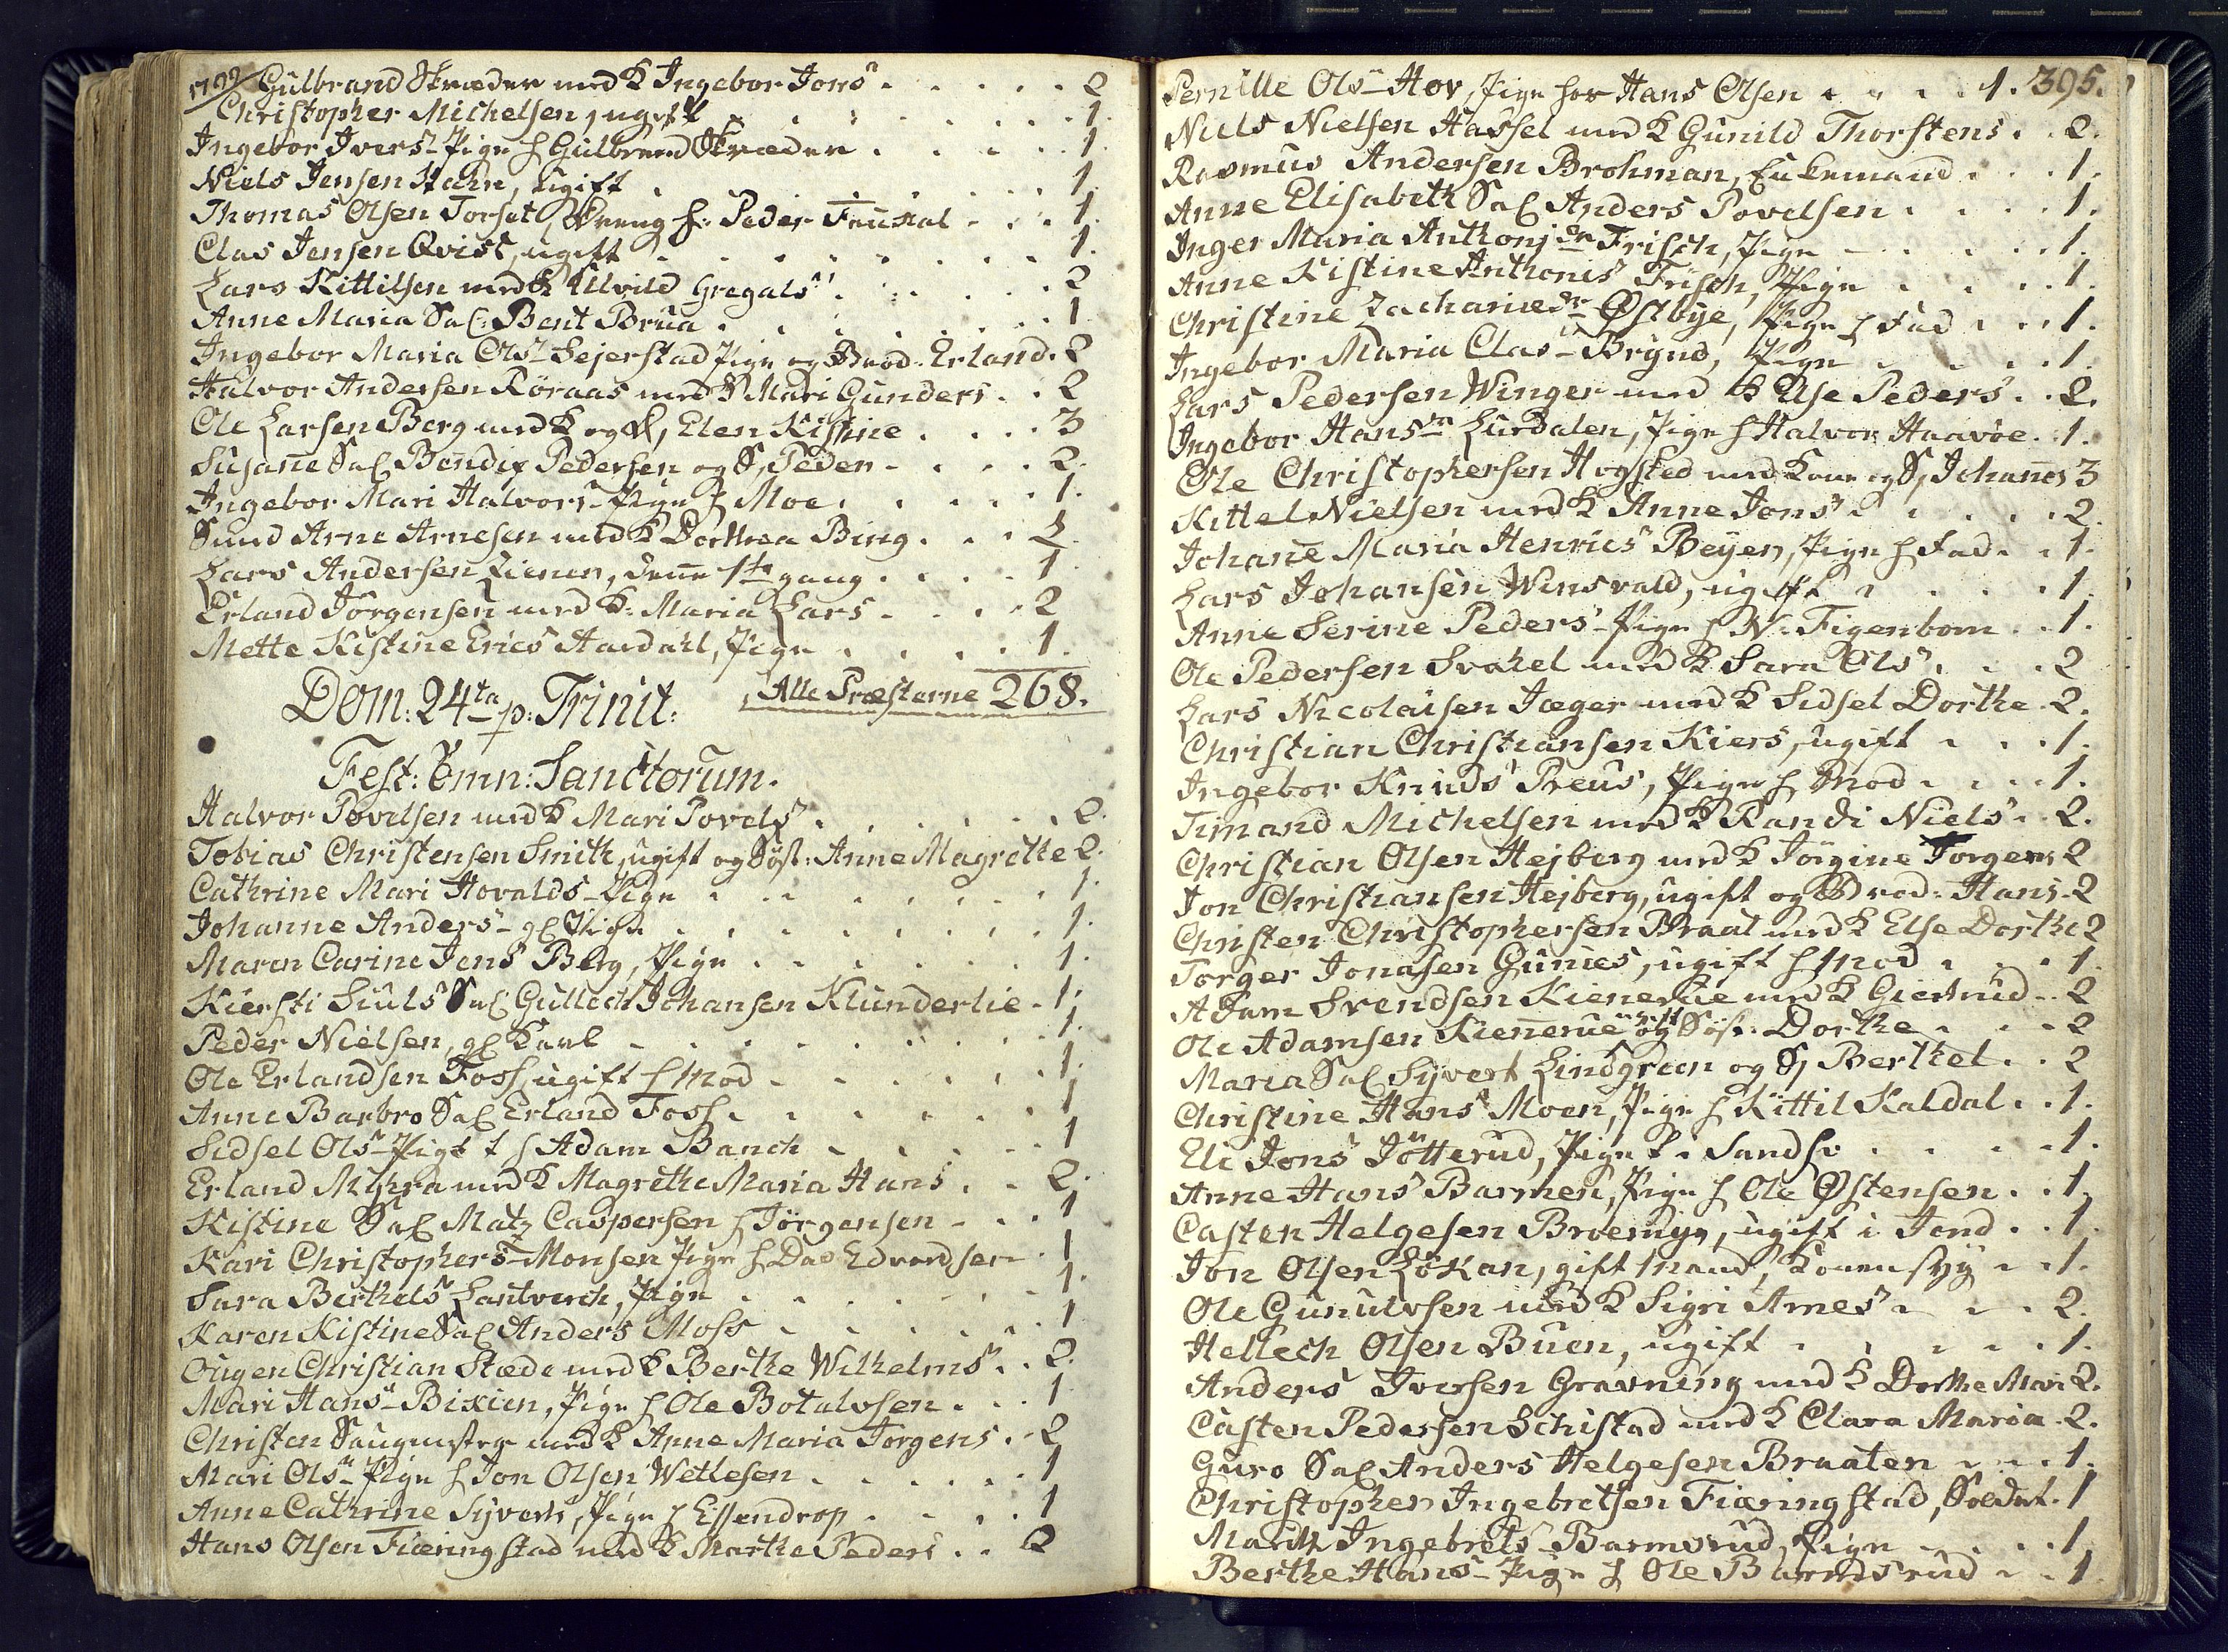 1792 Gulbrand Skræder med K Ingebor Jons . . . . . 2
Christopher Michelsen, ugift . . . . . 1.
Ingebor Ivers Pige h Gulbrand Skræder . . . . 1.
Niels Jensen Hahn, ugift . . . . . 1.
Thomas Olsen Torset, Dreng h: Peder . . . 1.
Clas Jensen Qvist, ugift . . . . . 1.
Lars Kittilsen med K Ulvild Gregals . . . . . 2
Anne Maria Sal: Bent Brua . . . . . 1
Ingebor Maria Ols Sejerstad Pige og Brod. Erland. 2
Halvor Andersen Röraas med K Mari Gunders . . 2
Ole Larsen Berg med K og D, Elen Kistine . . . . 3
Susane Sal Bendix Pedersen og S, Peder . . . . 2.
Ingebor Mari Halvors Pige h Moe . . . . . 1.
Arne Arnesen med K Dorthea Bing . . . 2.
Lars Andersen , 1te gang . . . . 1
Erland Jörgensen med K: Maria Lars . . . . 2
Mette Kistine Erics Aardahl, Pige . . . . 1.
Alle Præsterne 268.
Dom: 24ta p: Trinit:
Fest: Omn: Sanctorum.
Halvor Povelsen med K Mari Povels . . . . . 2.
Tobias Christensen Smith, ugift og Söst: Anne Magrethe 2.
Cathrine Mari Hovalds Pige . . . . . 1.
Johanne Anders gl Pige . . . . . 1.
Maren Carine Jens Berg, Pige . . . . . 1.
Kiersti Siuls Sal: Gullech Johansen Klunderlie . 1.
Peder Nielsen, gl Karl . . . . . 1.
Ole Erlandsen Foss, ugift h Mod . . . . . 1.
Anne Barbro Sal Erland Foss . . . . . 1
Sidsel Ols Pige t h Adam Banch . . . . 1
Erland Myhra med K Magrethe Maria Hans . . 2.
Kistine Sal Matz Caspersen h Jörgensen . . . 1
Kari Christophers Monsen Pige h Edvardsen . 1
Sara Berthels Lantverch, Pige . . . . . 1.
Karen Kistine Sal Anders Moss . . . . . 1
Ougen Christian Stæde med K Berthe Wilhelms . . 2.
Mari Hans Bixien, Pige h Ole Botulvsen . . . 1
Christen Saugmester med K Anne Maria Torgens . . 2
Mari Ols Pige h Jon Olsen Wetlesen . . . . . 1
Anne Cathrine Syverts, Pige h Eissendrop . . . . 1
Hans Olsen Fiæringstad med K Marthe Peders . . 2
Pernille Ols Hov, Pige hos Hans Olsen . . . . 1. 395.
Niels Nielsen Hassel med K Gunild Thorstens . . 2.
Rasmus Andersen Brohman, Enkemand . . . 1.
Anne Elisabeth Sal Anders Povelsen . . . . 1.
Inger Maria Anthonj dr Frisch, Pige . . . . . 1.
Anne Kistine Anthonis Frisch, Pige . . . . 1.
Christine Zacharias dr Østbye, Pige h Fad . . . 1.
Ingebor Maria Clas Brynd, Pige . . . . 1.
Lars Pedersen Winger med K Else Peders . . 2.
Ingebor Hans Lurdalen, Pige h Halvor Haavøe . 1.
Ole Christophersen Hogsted med Kone og S, Johannes 3
Kittel Nielsen med K Anne Jons . . . . . 2.
Johane Maria Henrics Beyer, Pige h Fad . . 1.
Lars Johansen Winsvald, ugift . . . . . 1.
Anne Serine Peders Pige h N. Figenbom . . 1.
Ole Pedersen Svahel med K Sara Ols . . . 2
Lars Nicolaisen Jæger med K Sidsel Dorthe . 2.
Christian Christiansen Kiers, ugift . . . 1.
Ingebor Knuds Preus, Pige h Mod . . . . 1.
Timand Michelsen med K Randi Niels . . 2.
Christian Olsen Hejberg med K Jörgine Torgers 2
Jon Christiansen Hejberg, ugift og Brod: Hans . 2
Christen Christophersen Braat med K Else Dorthe 2
Torger Jonasen Gunies, ugift h Mod . . . 1.
Adam Svendsen Kienerue med K Giertrud . . 2
Ole Adamsen Kienerue ugift og Söst: Dorthe . . . 2
Maria Sal Syvert Lindgreen og S, Berthel . . 2
Christine Hans Moen, Pige h Kittil Kaldal . . 1.
Eli Jons Jötterud, Pige f i Sandsv . . . . 1.
Anne Hans Barmen, Pige h Ole Østensen . . 1.
Casten Helgesen Broemyg, ugift i Jond . . 1.
Jon Olsen Lökan, gift Mand, Konen syg . . 1.
Ole Gunulvsen med K Sigri Arnes . . . 2.
Hellech Olsen Buen, ugift . . . . . 1.
Anders Iversen Gravning med K Dorthe Mari 2.
Casten Pedersen Schistad med K Clara Maria . 2.
Guro Sal Anders Helgesen Braaten . . . 1.
Christopher Ingebretsen Fiæringstad, Soldat . 1
Marth Ingebrets Barmsrud, Pige . . . . 1.
Berthe Hans Pige h Ole Barmsrud . . 1